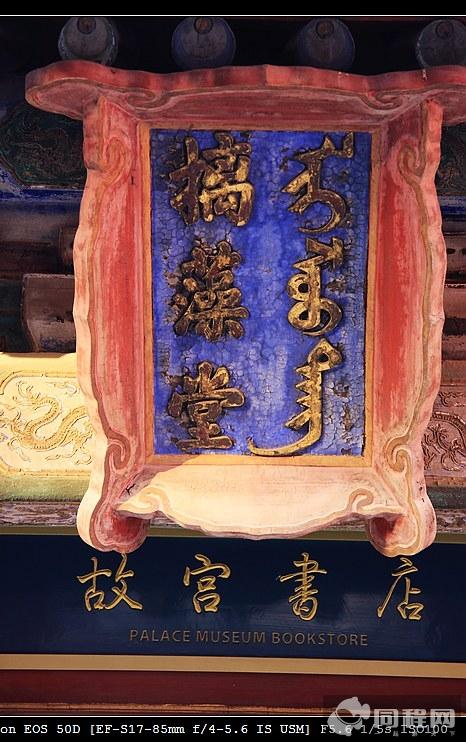 摛藻堂
故宫書店
PALACE MUSEUM BOOKSTORE
同程网
on EOS 50D [EF-S17-85mm f/4-5.6 IS USM] F5.6 1/5s ISO100